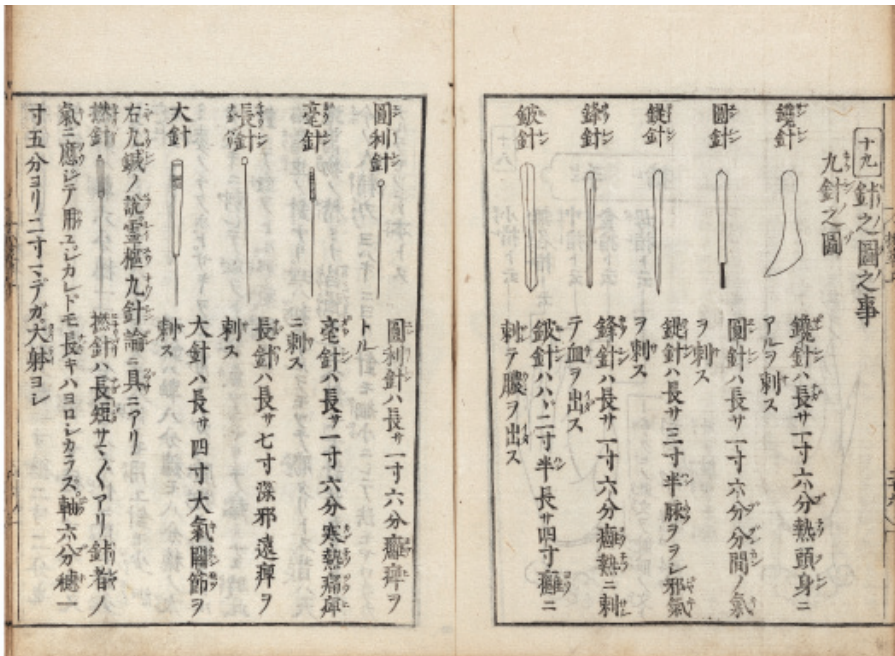 十九 針之圖之事
九針之圖
鑱針
鑱針ハ長サ一寸六分熱頭身ニ
アルヲ刺ス
圓針
圓針ハ長サ一寸六分分間ノ氣
ヲ刺ス
鍉針
鍉針ハ長サ三寸半脉ヲヲシ邪氣
ヲ刺ス
鋒針
鋒針ハ長サ一寸六分癰熱ニ刺
テ血ヲ出ス
鈹針
鈹針ハハヾ二寸半長サ四寸癰ニ
刺テ膿ヲ出ス
圓利針
圓利針ハ長サ一寸六分癰痺ヲ
トル
毫針
毫針ハ長サ一寸六分寒熱痛痺
ニ刺ス
長針
長針ハ長サ七寸深邪遠痺ヲ
刺ス
大針
大針ハ長サ四寸大氣關節ヲ
刺ス
右九鍼ノ説霊樞九針論ニ具ニアリ
撚針
撚針ハ長短サマ〲アリ針者ノ
氣ニ應シテ用ユシカレドモ長キハヨロシカラス軸六分穂一
寸五分ヨリ二寸マデガ大射ヨシ